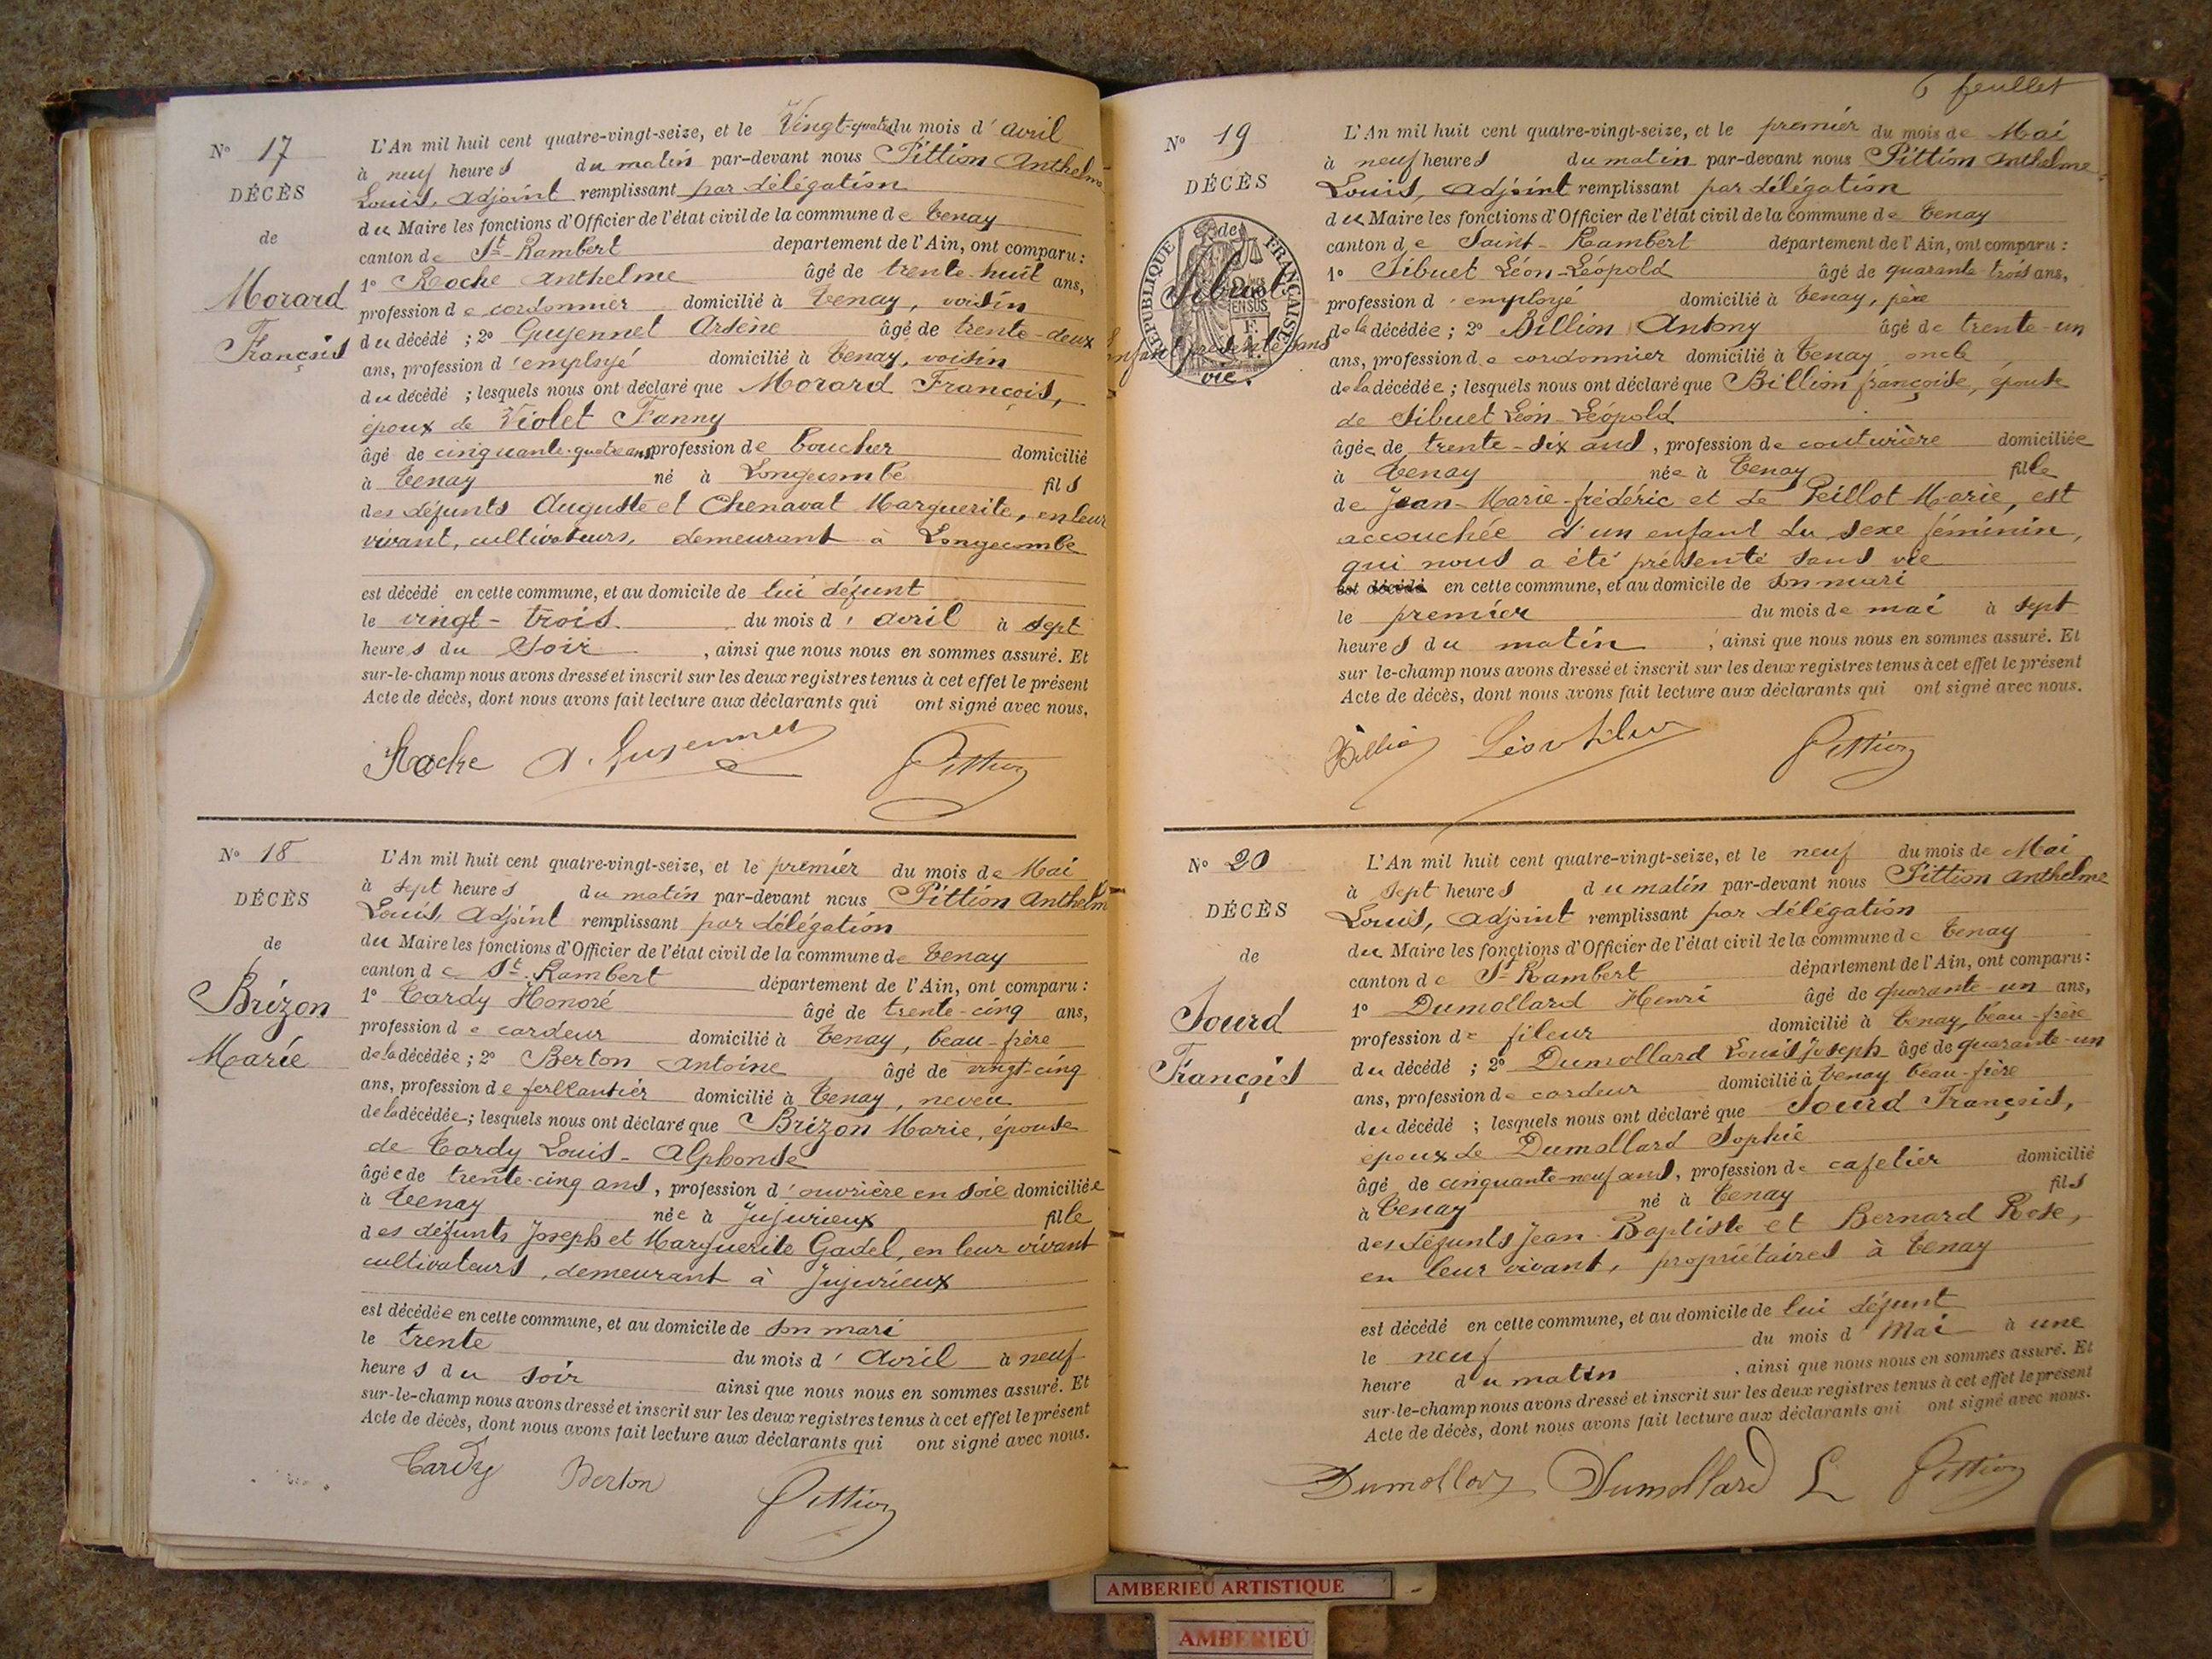 N° 17
DÉCÈS
de
Morard
François
L'An mil huit cent quatre-vingt-seize, et le Vingt-quatre du mois d'avril
à neuf heures du matin par-devant nous Pittion Anthelme
Louis, adjoint remplissant par délégation
du Maire les fonctions d'Officier de l'état civil de la commune de Tenay
canton de St-Rambert département de l'Ain, ont comparu :
1° Roche Anthelme âgé de trente-huit ans,
profession de cordonnier domicilié à Tenay, voisin
du décédé ; 2° Guyennet Arsène âgé de trente-deux
ans, profession d'employé domicilié à Tenay, voisin
du décédé ; lesquels nous ont déclaré que Morard François,
époux de Violet Fanny
âgé de cinquante-quatre ans profession de boucher domicilié
à Tenay né à Longecombe fils
des défunts Auguste et Chenavat Marguerite, en leur
vivant, cultivateurs, demeurant à Longecombe
est décédé en cette commune, et au domicile de lui défunt
le vingt-trois du mois d'avril à sept
heures du soir, ainsi que nous nous en sommes assuré. Et
sur-le-champ nous avons dressé et inscrit sur les deux registres tenus à cet effet le présent
Acte de décès, dont nous avons fait lecture aux déclarants qui ont signé avec nous.
Roche A. Guyennet Pittion
N° 18
DÉCÈS
de
Brizon
Marie
L'An mil huit cent quatre-vingt-seize, et le premier du mois de Mai
à sept heures du matin par-devant nous Pittion Anthelm
Louis, adjoint remplissant par délégation
du Maire les fonctions d'Officier de l'état civil de la commune de Tenay
canton de St-Rambert département de l'Ain, ont comparu :
1° Tardy Honoré âgé de trente-cinq ans,
profession de cardeur domicilié à Tenay, beau-frère
de la décédée ; 2° Berton Antoine âgé de vingt-cinq
ans, profession de ferblantier domicilié à Tenay, neveu
de la décédée ; lesquels nous ont déclaré que Brizon Marie, épouse
de Tardy Louis-Alphonse
âgée de trente-cinq ans, profession d'ouvrière en soie domiciliée
à Tenay née à Jujurieux fille
des défunts Joseph et Marguerite Gadel, en leur vivant
cultivateurs, demeurant à Jujurieux
est décédée en cette commune, et au domicile de son mari
le trente du mois d'Avril à neuf
heures du soir ainsi que nous nous en sommes assuré. Et
sur-le-champ nous avons dressé et inscrit sur les deux registres tenus à cet effet le présent
Acte de décès, dont nous avons fait lecture aux déclarants qui ont signé avec nous.
Tardy Berton Pittion
6 feuillet
N° 19
DÉCÈS
de
Sibuet
enfant présenté sans
vie.
RÉPUBLIQUE FRANÇAISE
L'An mil huit cent quatre-vingt-seize, et le premier du mois de Mai
à neuf heures du matin par-devant nous Pittion Anthelme
Louis, adjoint remplissant par délégation
du Maire les fonctions d'Officier de l'état civil de la commune de Tenay
canton de Saint-Rambert département de l'Ain, ont comparu :
1° Sibuet Léon-Léopold âgé de quarante-trois ans,
profession d'employé domicilié à Tenay, père
de la décédée ; 2° Billion Antony âgé de trente-un
ans, profession de cordonnier domicilié à Tenay oncle
de la décédée ; lesquels nous ont déclaré que Billion françoise, épouse
de Sibuet Léon-Léopold
âgée de trente-six ans, profession de couturière domiciliée
à Tenay née à Tenay fille
de Jean-Marie-frédéric et de Peillot Marie, est
accouchée d'un enfant du sexe féminin,
qui nous a été présenté sans vie
est décédé en cette commune, et au domicile de son mari
le premier du mois de mai à sept
heures du matin, ainsi que nous nous en sommes assuré. Et
sur-le-champ nous avons dressé et inscrit sur les deux registres tenus à cet effet le présent
Acte de décès, dont nous avons fait lecture aux déclarants qui ont signé avec nous.
Billion Léon Sibuet Pittion
N° 20
DÉCÈS
de
Sourd
François
L'An mil huit cent quatre-vingt-seize, et le neuf du mois de Mai
à sept heures du matin par-devant nous Pittion Anthelme
Louis, adjoint remplissant par délégation
du Maire les fonctions d'Officier de l'état civil de la commune de Tenay
canton de St-Rambert département de l'Ain, ont comparu :
1° Dumollard Henri âgé de quarante-un ans,
profession de fileur domicilié à Tenay, beau-frère
du décédé ; 2° Dumollard Louis Joseph âgé de quarante-un
ans, profession de cardeur domicilié à Tenay beau-frère
du décédé ; lesquels nous ont déclaré que Sourd François,
époux de Dumollard Sophie
âgé de cinquante-neuf ans, profession de cafetier domicilié
à Tenay né à Tenay fils
des défunts Jean-Baptiste et Bernard Rose,
en leur vivant, propriétaires à Tenay
est décédé en cette commune, et au domicile de lui défunt
le neuf du mois d Mai à une
heure du matin, ainsi que nous nous en sommes assuré. Et
sur-le-champ nous avons dressé et inscrit sur les deux registres tenus à cet effet le présent
Acte de décès, dont nous avons fait lecture aux déclarants qui ont signé avec nous.
Dumollard Dumollard L Pittion
AMBERIEU ARTISTIQUE
AMBERIEU